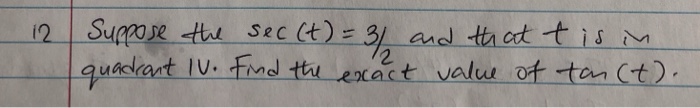 12 Suppose the sec(t) = 3/2 and that t is in
quadrant IV. Find the exact value of tan(t).